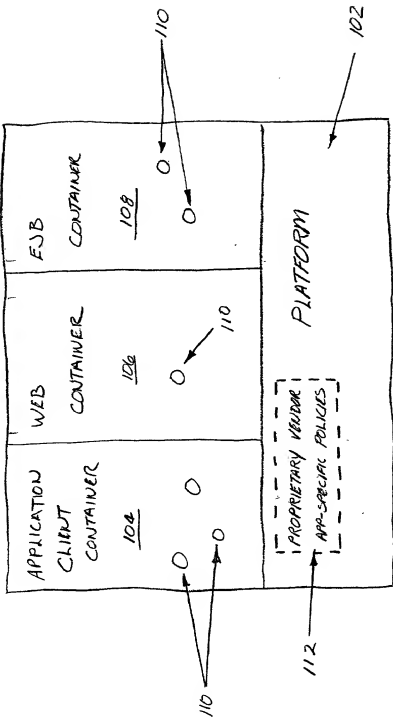 APPLICATION
CLIENT
CONTAINER
104
WEB
CONTAINER
106
EJB
CONTAINER
108
110
110
110
PLATFORM
PROPRIETARY VENDOR
APP-SPECIFIC POLICIES
112
102